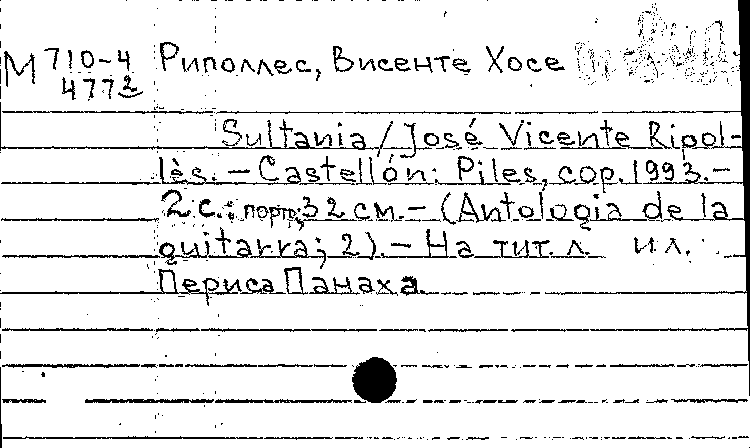 М 710-4 Риполлес, Висенте Хосе
4772
Sultania / José Vicente Ripol-
lès. – Castellón: Piles, cop. 1993. –
2 с.: портр; 32 см. – (Antologia de la
guitarra; 2). – На тит. л. ил.
Периса Панаха.